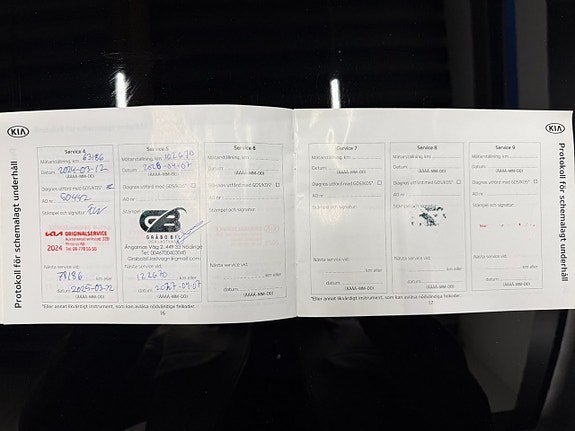 KIA
Protokoll för schemalagt underhåll
Service 4
Mätarställning, km 63186
Datum 2024-03-12
(ÅÅÅÅ-MM-DD)
Diagnos utförd med GDS/KDS*
AO nr 50442
Stämpel och signatur
KIA ORIGINALSERVICE
2024
Nästa service vid:
78186 km eller
datum 2025-03-12
(ÅÅÅÅ-MM-DD)
Service 5
Mätarställning, km 107670
Datum
(ÅÅÅÅ-MM-DD)
Diagnos utförd med GDS/KDS*
AO nr
Stämpel och signatur
GB
GRÅBO BIL
Ängarnas Väg 2, 449 33 Nödinge
Nästa service vid:
122670 km eller
datum
(ÅÅÅÅ-MM-DD)
Service 6
Mätarställning, km
Datum
(ÅÅÅÅ-MM-DD)
Diagnos utförd med GDS/KDS*
AO nr
Stämpel och signatur
Nästa service vid:
km eller
datum
(ÅÅÅÅ-MM-DD)
*Eller annat likvärdigt instrument, som kan avläsa nödvändiga felkoder.
16
Service 7
Mätarställning, km
Datum
(ÅÅÅÅ-MM-DD)
Diagnos utförd med GDS/KDS*
AO nr
Stämpel och signatur
Nästa service vid:
km eller
datum
(ÅÅÅÅ-MM-DD)
Service 8
Mätarställning, km
Datum
(ÅÅÅÅ-MM-DD)
Diagnos utförd med GDS/KDS*
AO nr
Stämpel och signatur
Nästa service vid:
km eller
datum
(ÅÅÅÅ-MM-DD)
Service 9
Mätarställning, km
Datum
(ÅÅÅÅ-MM-DD)
Diagnos utförd med GDS/KDS*
AO nr
Stämpel och signatur
Nästa service vid:
km eller
datum
(ÅÅÅÅ-MM-DD)
*Eller annat likvärdigt instrument, som kan avläsa nödvändiga felkoder.
17
KIA
Protokoll för schemalagt underhåll